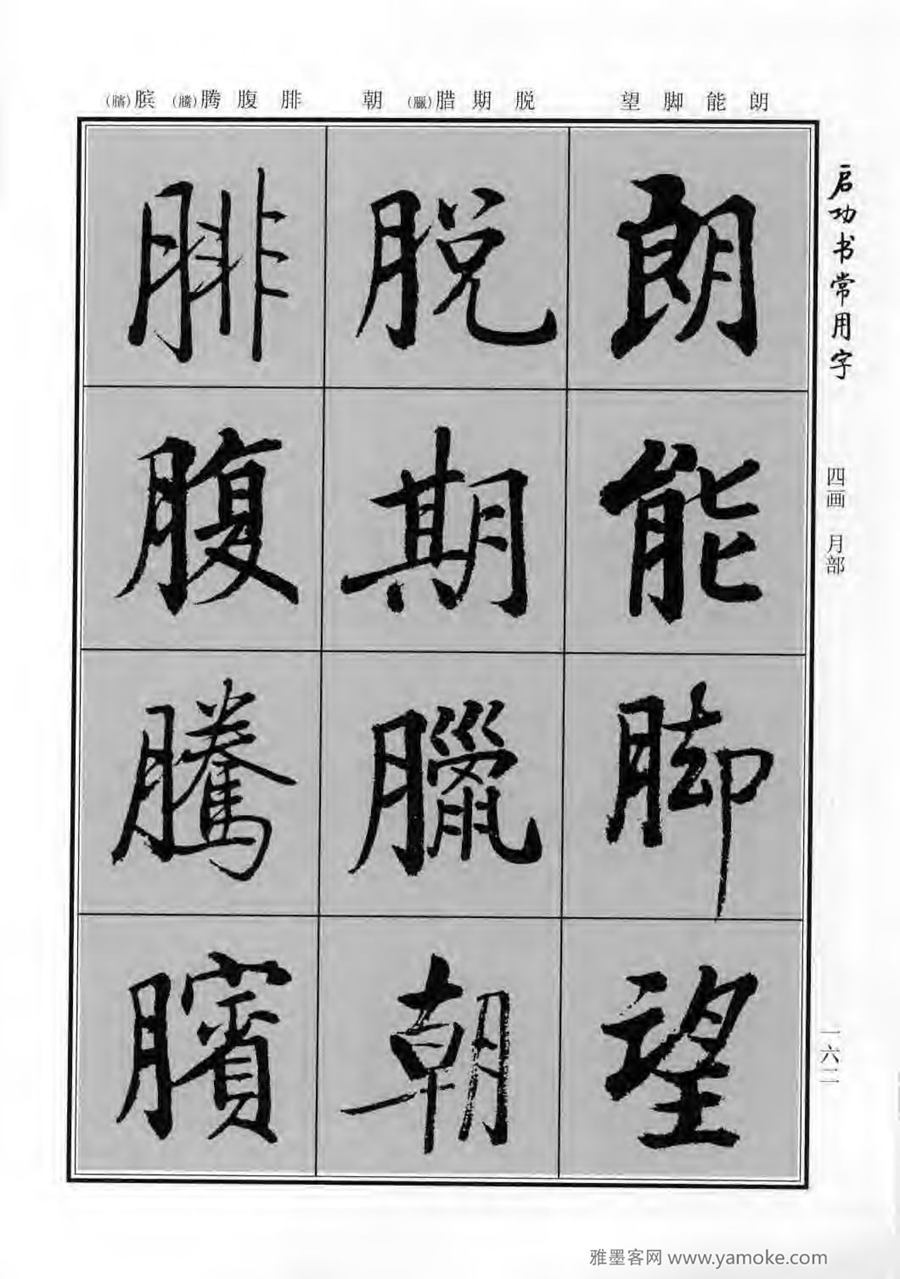 朗能脚望 脱期腊(臘)朝 腓腹腾(騰)膑(臏)
启功书常用字
四画 月部
一六二
朗能脚望
脱期臘朝
腓腹騰臏
雅墨客网 www.yamoke.com